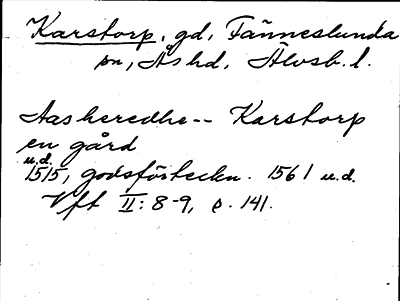 Karstorp, gd, Fänneslunda
sn, Ås hd, Älvsb. l.
Aasheredhe -- Karstorp
en gård
u.d.
1515, godsförteckn. 1561 u.d.
Vft II: 8-9, s. 141.